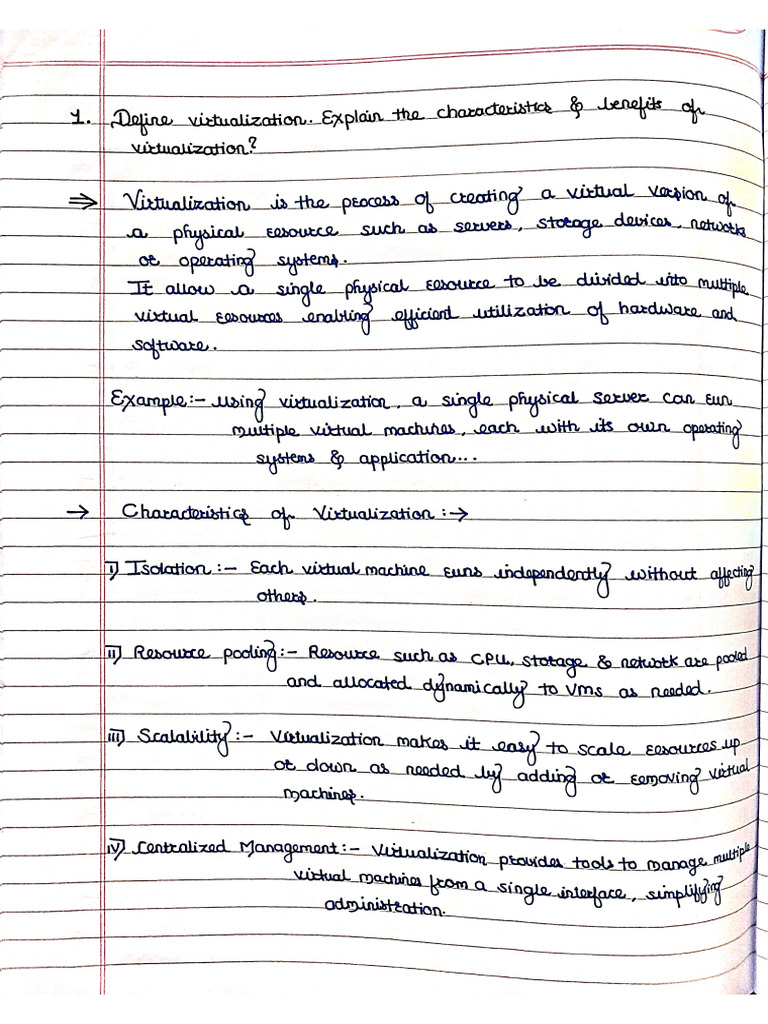 1. Define virtualization. Explain the characteristics & benefits of
virtualization?
⇒ Virtualization is the process of creating a virtual version of
a physical resource such as servers, storage devices, network
or operating systems.
It allow a single physical resource to be divided into multiple
virtual resources enabling efficient utilization of hardware and
software.
Example:- Using virtualization, a single physical server can run
multiple virtual machines, each with its own operating
systems & application...
→ Characteristics of Virtualization :→
i) Isolation :- Each virtual machine runs independently without affecting
others.
ii) Resource pooling:- Resource such as CPU, storage & network are pooled
and allocated dynamically to VMs as needed.
iii) Scalability :- Virtualization makes it easy to scale resources up
or down as needed by adding or removing virtual
machines.
iv) Centralized Management:- Virtualization provides tools to manage multiple
virtual machines from a single interface, simplifying
administration.